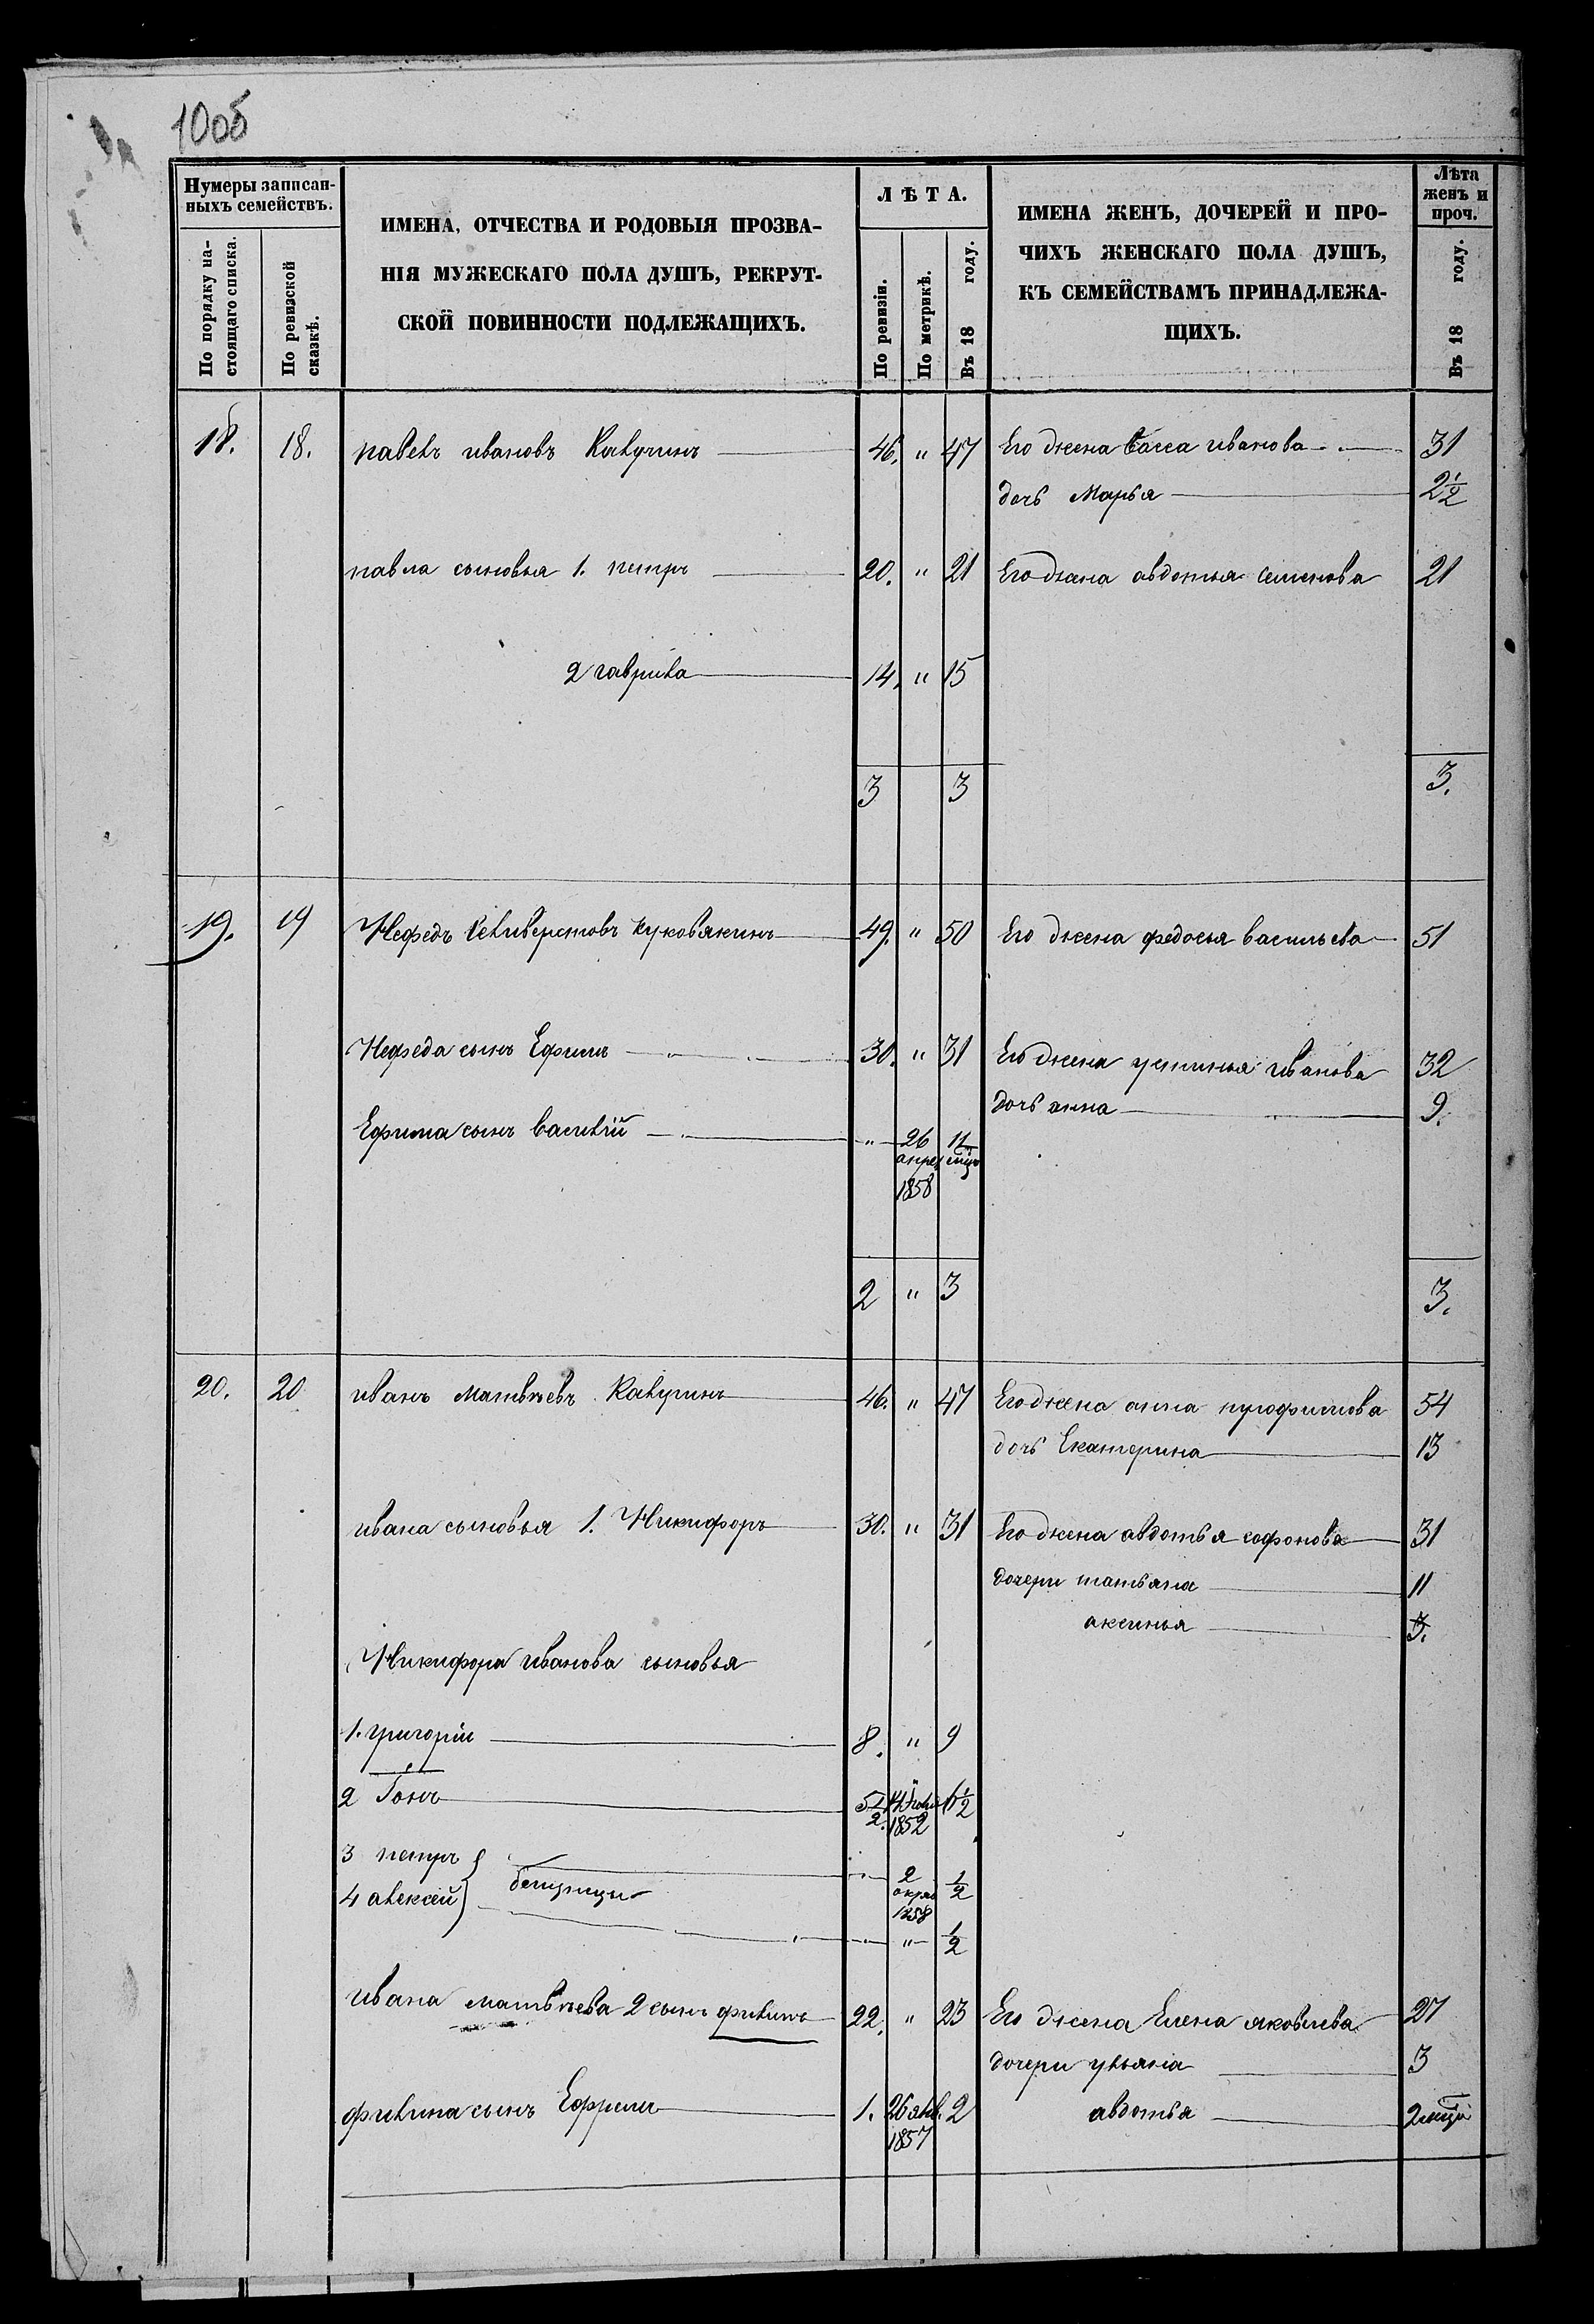 10об
Нумеры записан-
ныхъ семействъ.
По порядку на-
стоящаго списка.
По ревизской
сказкѣ.
ИМЕНА, ОТЧЕСТВА И РОДОВЫЯ ПРОЗВА-
НІЯ МУЖЕСКАГО ПОЛА ДУШЪ, РЕКРУТ-
СКОЙ ПОВИННОСТИ ПОДЛЕЖАЩИХЪ.
ЛѢТА.
По ревизіи.
По метрикѣ.
Въ 18 году.
ИМЕНА ЖЕНЪ, ДОЧЕРЕЙ И ПРО-
ЧИХЪ ЖЕНСКАГО ПОЛА ДУШЪ,
КЪ СЕМЕЙСТВАМЪ ПРИНАДЛЕЖА-
ЩИХЪ.
Лѣта
женъ и
проч.
Въ 18 году.
18. 18. павелъ ивановъ Калугинъ 46. " 47 Его жена Васса иванова 31
дочь Марья 2 1/2
павла сыновья 1. петръ 20. " 21 Его жена авдотья семенова 21
2 гаврила 14. " 15
3 3 3.
19. 19 Нефедъ Селиверстовъ куковякинъ 49. " 50 Его жена федосья васильева 51
Нефеда сынъ Ефимъ 30. " 31 Его жена устинья иванова 32
дочь анна 9.
Ефима сынъ василій " 26 11
апрел мцъ
1858
2 " 3 3.
20. 20 иванъ матвѣевъ Калугинъ 46. " 47 Его жена анна 54
дочь Екатерина 13
ивана сыновья 1. Никифоръ 30. " 31 Его жена авдотья софонова 31
дочери татьяна 11
аксинья 3.
Никифора иванова сыновья
1. григоріи 8. " 9
2 Іонъ 5 1/2. 14 1852 6 1/2
3 петръ " 2 1/2
1858
4 алексей " " 1/2
ивана матвѣева 2 сынъ филипъ 22. " 23 Его жена Елена яковлева 27
дочери ульяна 3
филипа сынъ Ефремъ 1. 26 янв. 2 авдотья 2 мцъ
1857